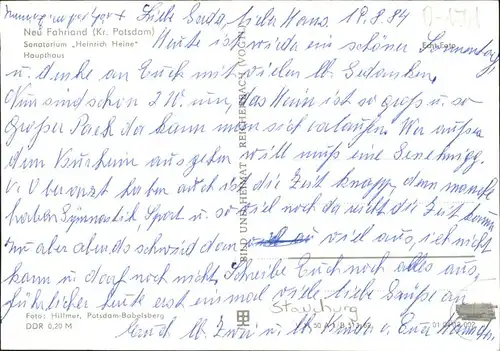 Liebe Gerda, liebe Hans. 19.8.84
Neu Fahrland (Kr. Potsdam)
Sanatorium „Heinrich Heine"
Haupthaus
Heute ist wieder ein schöner Sonntag
u. denke an Euch mit vielen lb. Gedanken.
Nun sind schon 2 W. um, das Heim ist so groß u. so
großer Park da kann man sich verlaufen. Wer außer
dem Kurheim ausgehen will muß eine Genehmigg.
v. Oberarzt haben auch ist die Zeit knapp, denn manche
haben Gymnastik Sport u. so viel noch da reicht die Zeit kaum
nur aber abends schweid dann viel aus, ich nicht
kann u. darf noch nicht. Schreibe Euch noch alles aus-
führlicher heute erst einmal viele liebe Grüße an
Euch lb. Zwei u. lb. v. Eura
BILD UND HEIMAT REICHENBACH (VOGTL)
Foto: Hillmer, Potsdam-Babelsberg
DDR 0,20 M